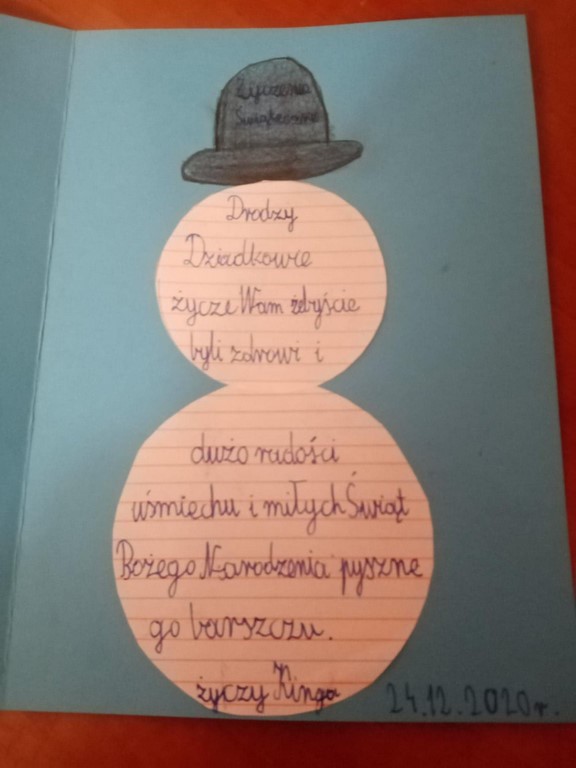 Życzenia
Świąteczne
Drodzy
Dziadkowie
życze Wam żebyście
byli zdrowi i
dużo radości
uśmiechu i miłych Świąt
Bożego Narodzenia pyszne
go barszczu.
życzy Kinga
24.12.2020r.